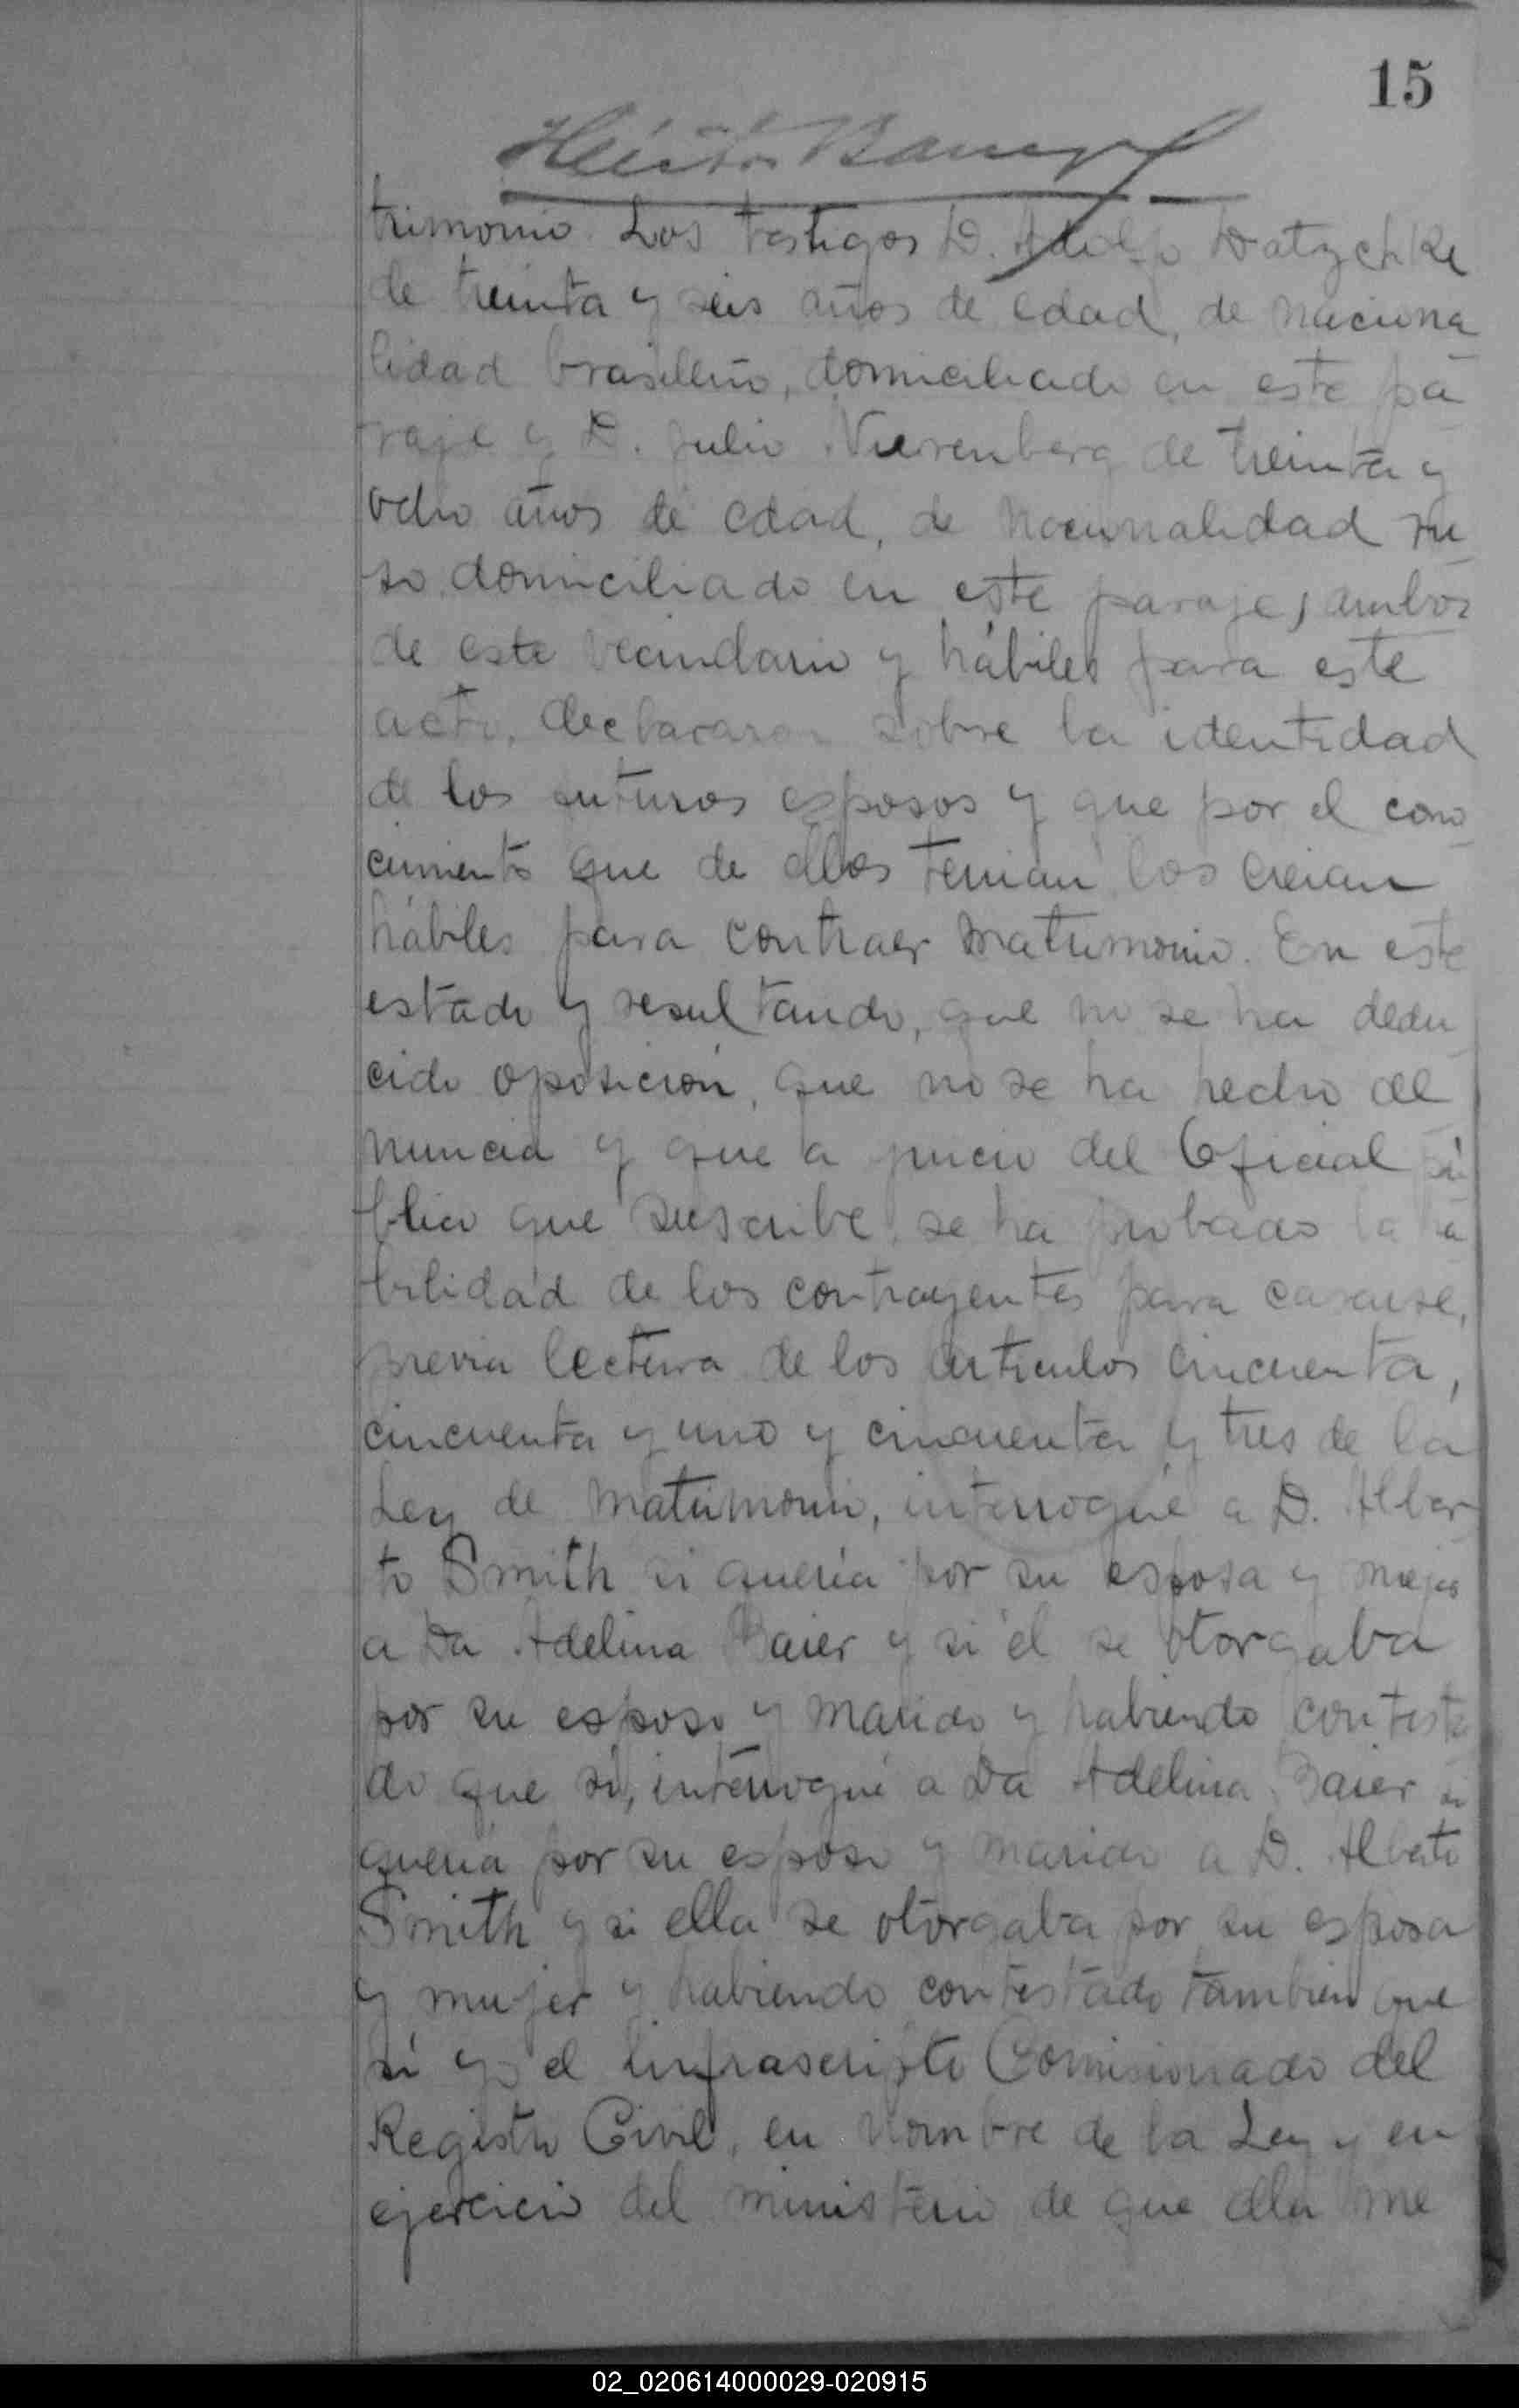 15
Héctor
trimonio. Los testigos D. Adolfo Datzchke
de treinta y seis años de edad, de naciona
lidad brasilleño, domiciliado en este pa
raje y D. Julio Nierenberg de treinta y
ocho años de edad, de nacionalidad ru
so domiciliado en este paraje, ambos
de este vecindario y hábiles para este
acto, declararon sobre la identidad
de los futuros esposos y que por el cono
cimiento que de ellos tenian los creian
hábiles para contraer matrimonio. En este
estado y resultando, que no se ha dedu
cido oposición, que no se ha hecho de
nuncia y que a juicio del Oficial pú
blico que suscribe se ha probado la ha
bilidad de los contrayentes para casarse,
previa lectura de los articulos cincuenta,
cincuenta y uno y cincuenta y tres de la
Ley de Matrimonio, interrogué a D. Alber
to Smith si quería por su esposa y mujer
a Da Adelina Baier y si él se otorgaba
por su esposo y marido y habiendo contesta
do que sí, interrogué a Da Adelina Baier si
quería por su esposo y marido a D. Alberto
Smith y si ella se otorgaba por su esposa
y mujer y habiendo contestado tambien que
sí yo el infrascripto Comisionado del
Registro Civil, en nombre de la Ley y en
ejercicio del ministerio de que ella me
02_020614000029-020915